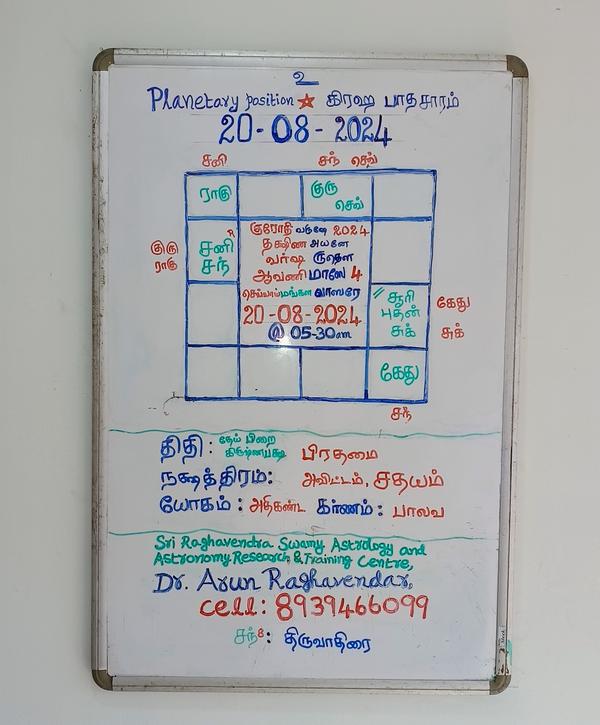 உ
Planetary position ☆ கிரஹ பாதசாரம்
20-08-2024
சனி சந் செவ்
ராகு குரு செவ்
குரு ராகு
சனி R
சந்
குரோதி வருஷே 2024
தக்ஷிண அயனே
வர்ஷ ருதௌ
ஆவணி மாஸே 4
செவ்வாய்/மங்கள வாஸரே
20-08-2024
@ 05-30am
சூரி
புதன்
சுக்
கேது
சுக்
கேது
சந்
திதி: தேய்பிறை கிருஷ்ணபக்ஷ பிரதமை
நக்ஷத்திரம்: அவிட்டம், சதயம்
யோகம்: அதிகண்ட கர்ணம்: பாலவ
Sri Raghavendra Swamy Astrology and
Astronomy Research & Training Centre,
Dr. Arun Raghavendar,
cell: 8939466099
சந் 8: திருவாதிரை